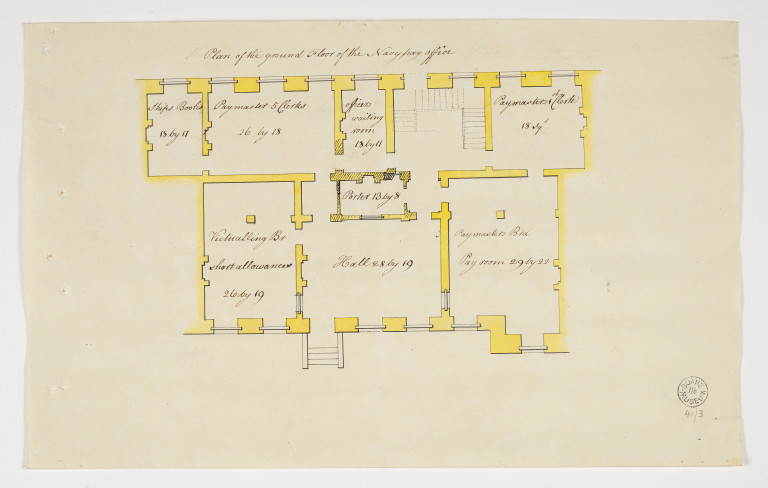 Plan of the ground Floor of the Navy pay office
Ships Books
18 by 11
Paymaster 5 Clerks
26 by 18
officers
waiting
room
18 by 11
Paymasters Clerk
18 Sqr
Porter 13 by 8
Victualling Br
short allowances
26 by 19
Hall 28 by 19
Paymasters Bra
Pay room 29 by 22
SOANE
MUSEUM
41/3